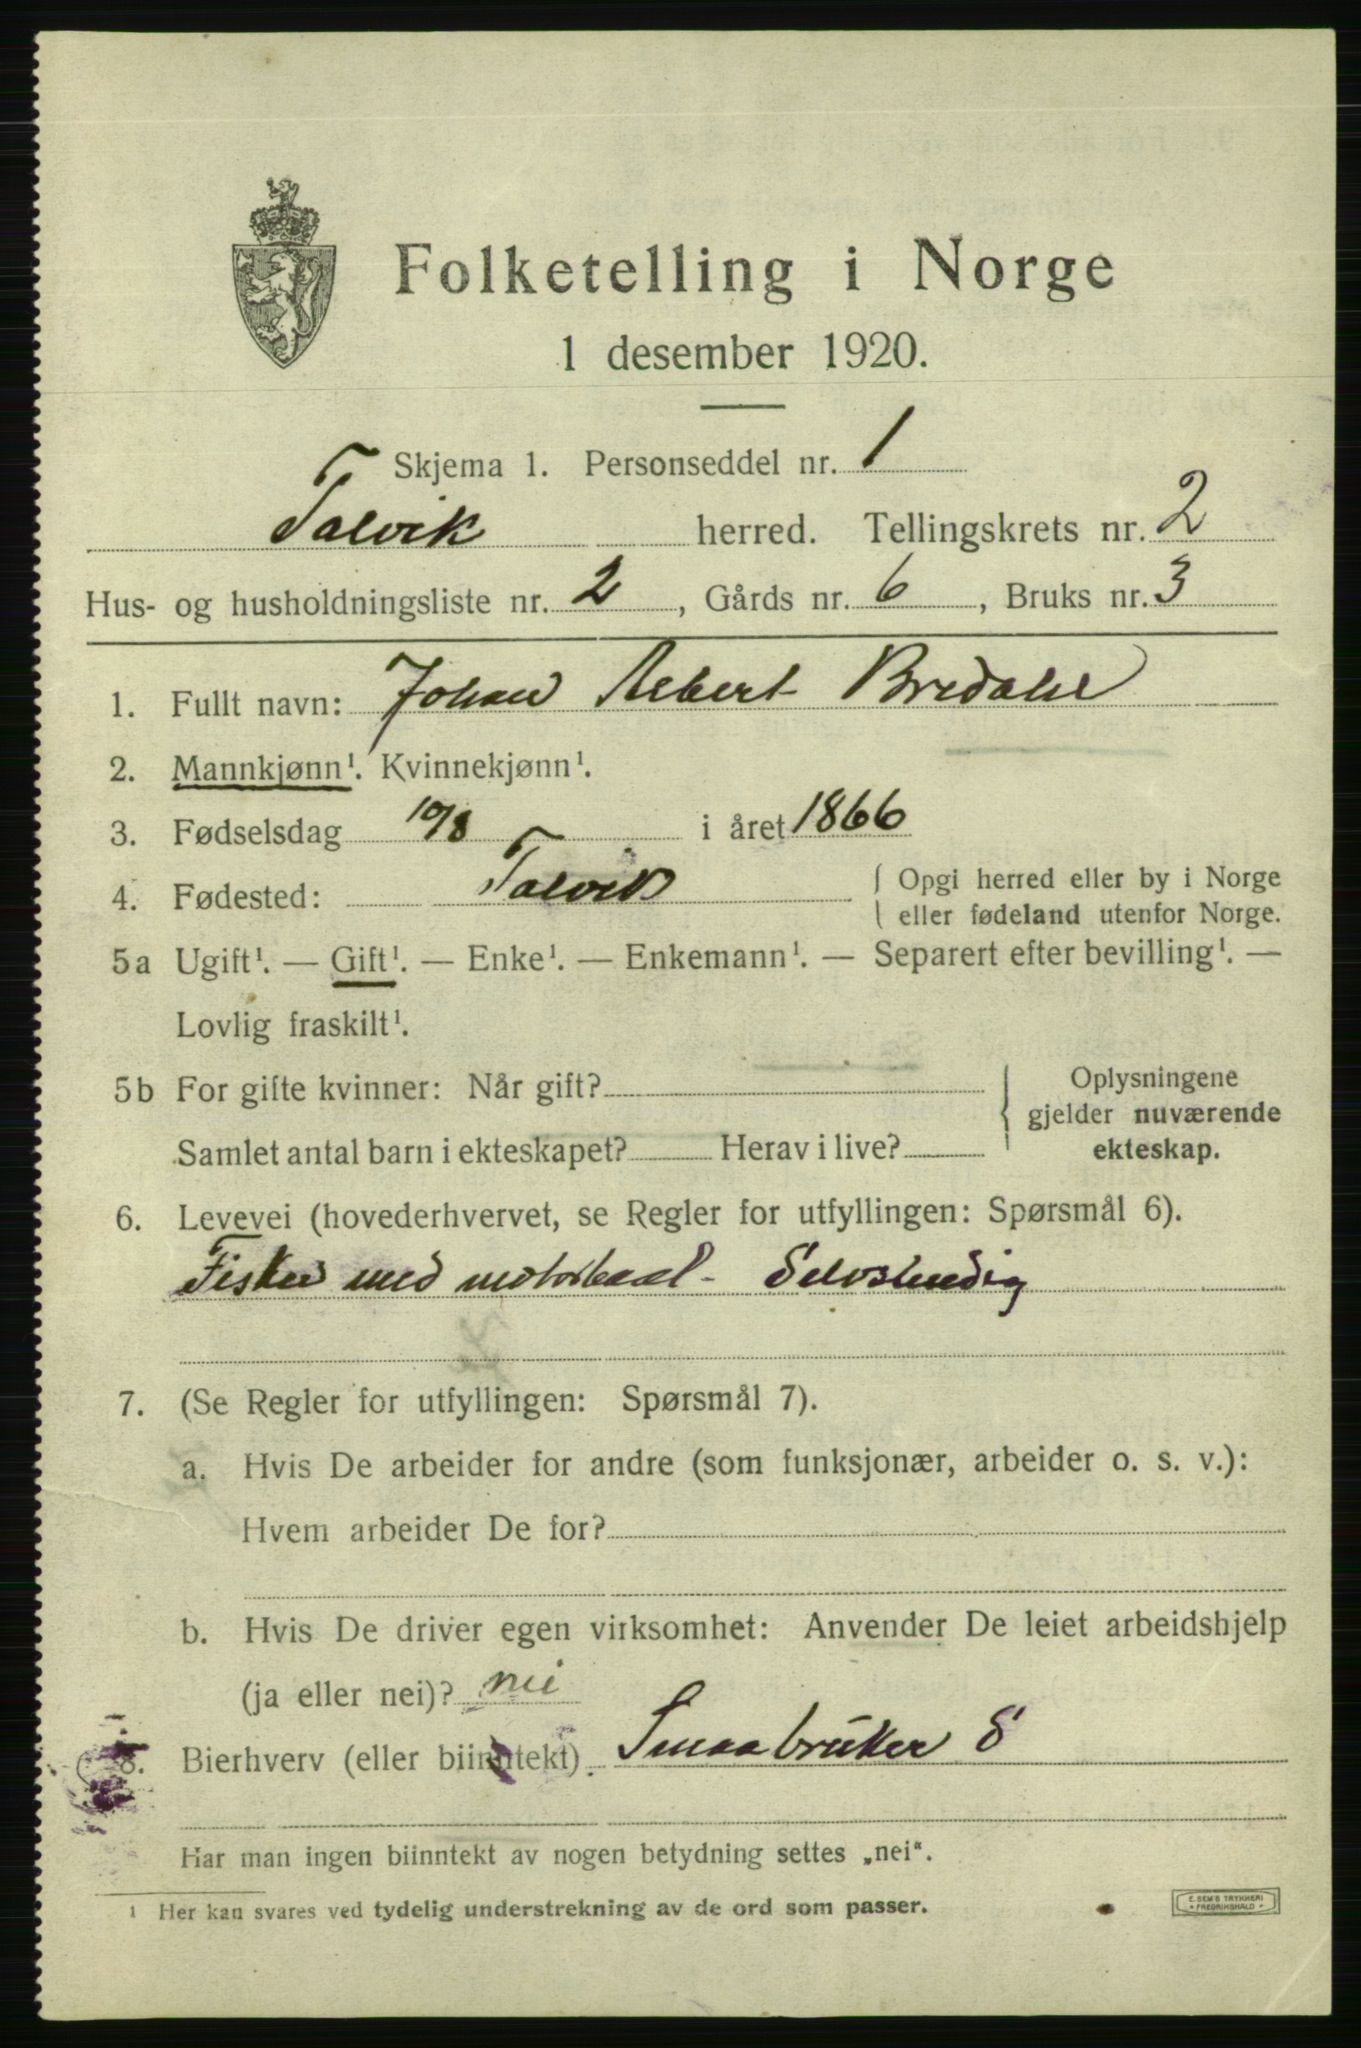 Folketelling i Norge
1 desember 1920.
Skjema 1. Personseddel nr. 1
Talvik herred. Tellingskrets nr. 2
Hus- og husholdningsliste nr. 2, Gårds nr. 6, Bruks nr. 3
1. Fullt navn: Johan Albert Bredahl
2. Mannkjønn¹. Kvinnekjønn¹.
3. Fødselsdag 10/8 i året 1866
4. Fødested: Talvik { Opgi herred eller by i Norge
eller fødeland utenfor Norge.
5a Ugift¹. — Gift¹. — Enke¹. — Enkemann¹. — Separert efter bevilling¹. —
Lovlig fraskilt¹.
5b For gifte kvinner: Når gift? { Oplysningene
gjelder nuværende
Samlet antal barn i ekteskapet? Herav i live? ekteskap.
6. Levevei (hovederhvervet, se Regler for utfyllingen: Spørsmål 6).
Fisker med motorbaat - Selvstendig
7. (Se Regler for utfyllingen: Spørsmål 7).
a. Hvis De arbeider for andre (som funksjonær, arbeider o. s. v.):
Hvem arbeider De for?
b. Hvis De driver egen virksomhet: Anvender De leiet arbeidshjelp
(ja eller nei)? nei
8. Bierhverv (eller biinntekt) Smaabruker S
Har man ingen biinntekt av nogen betydning settes „nei“.
¹ Her kan svares ved tydelig understrekning av de ord som passer.
E. SEM'S TRYKKERI
* FREDRIKSHALD *